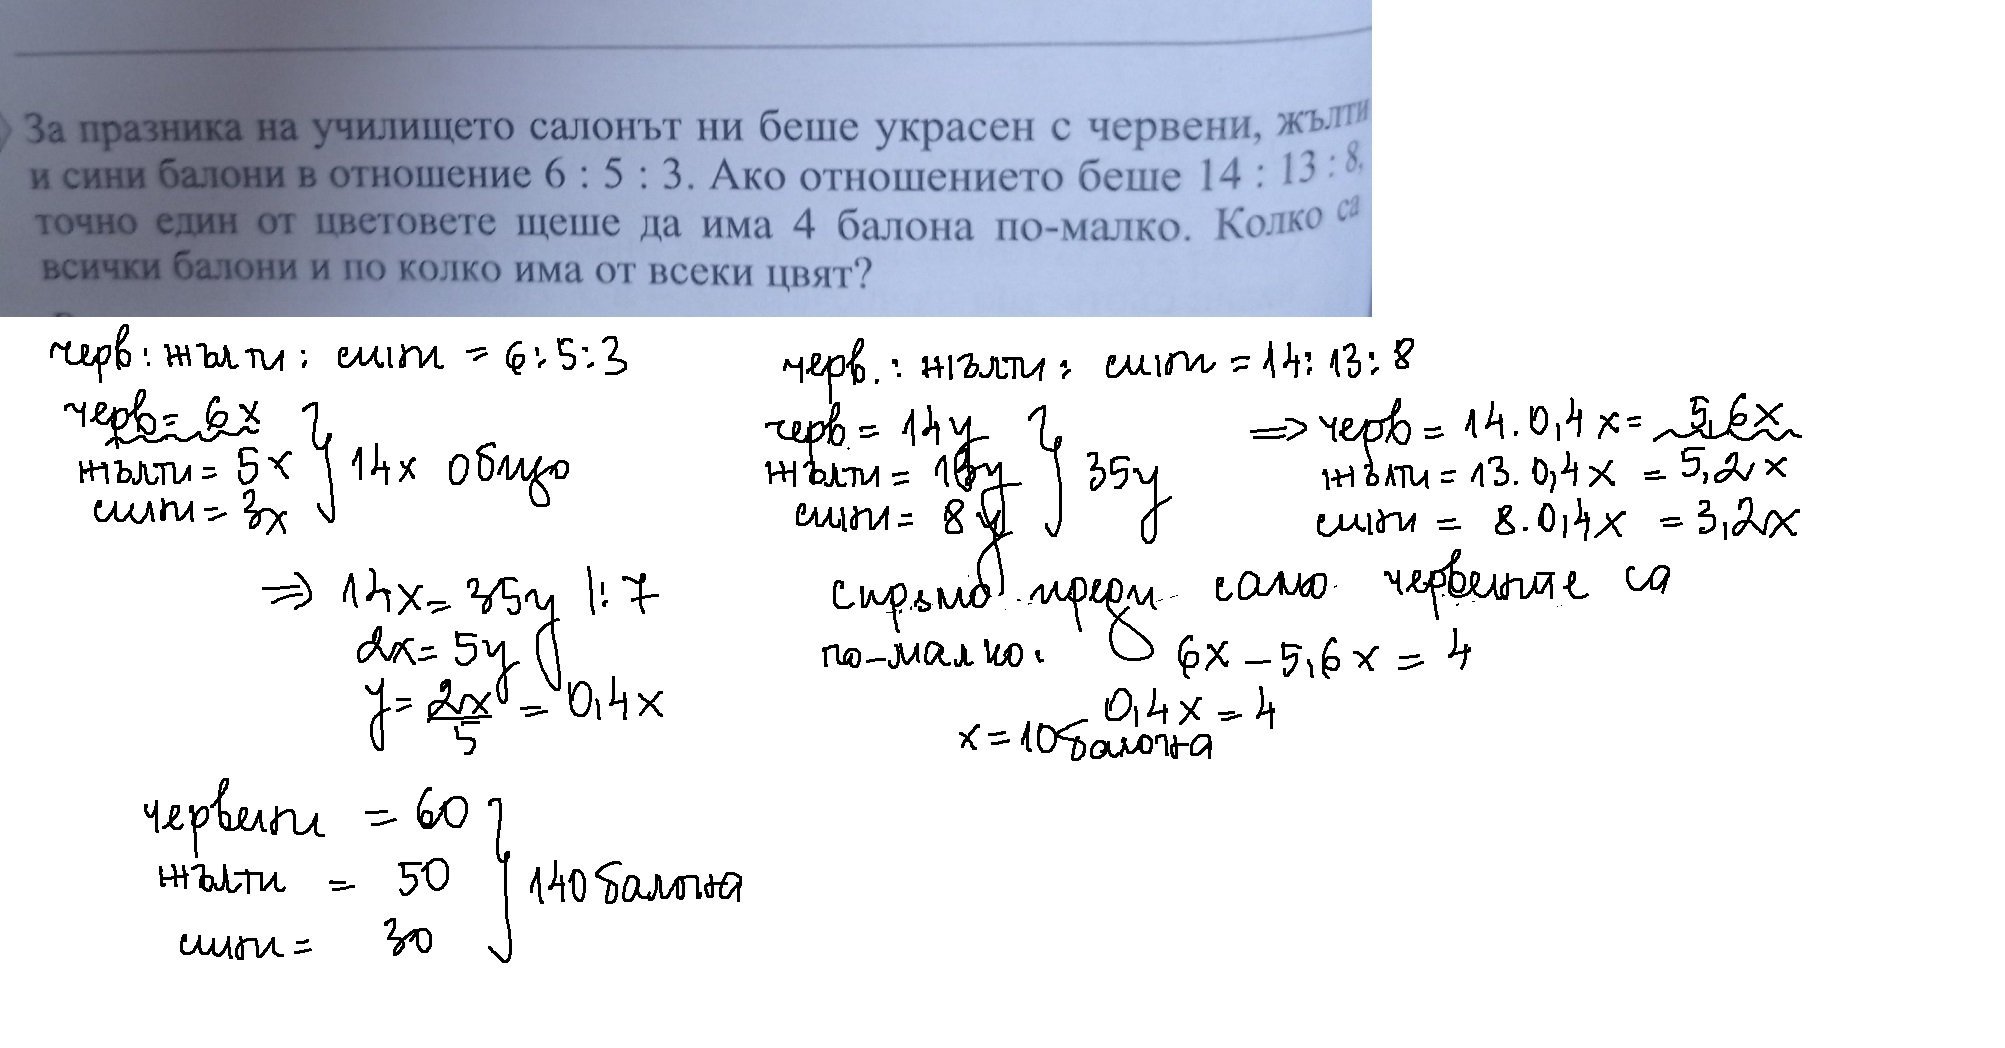 За празника на училището салонът ни беше украсен с червени, жълти
и сини балони в отношение 6 : 5 : 3. Ако отношението беше 14 : 13 : 8,
точно един от цветовете щеше да има 4 балона по-малко. Колко са
всички балони и по колко има от всеки цвят?
черв : жълти : сини = 6 : 5 : 3
черв = 6x
жълти = 5x
сини = 3x
14x общо
=> 14x = 35y |: 7
2x = 5y
y = 2x/5 = 0,4x
черв. : жълти : сини = 14 : 13 : 8
черв. = 14y
жълти = 13y
сини = 8y
35y
=> черв = 14.0,4x = 5,6x
жълти = 13.0,4x = 5,2x
сини = 8.0,4x = 3,2x
спрямо преди само червените са
по-малко. 6x – 5,6x = 4
0,4x = 4
x = 10 балона
червени = 60
жълти = 50
сини = 30
140 балона